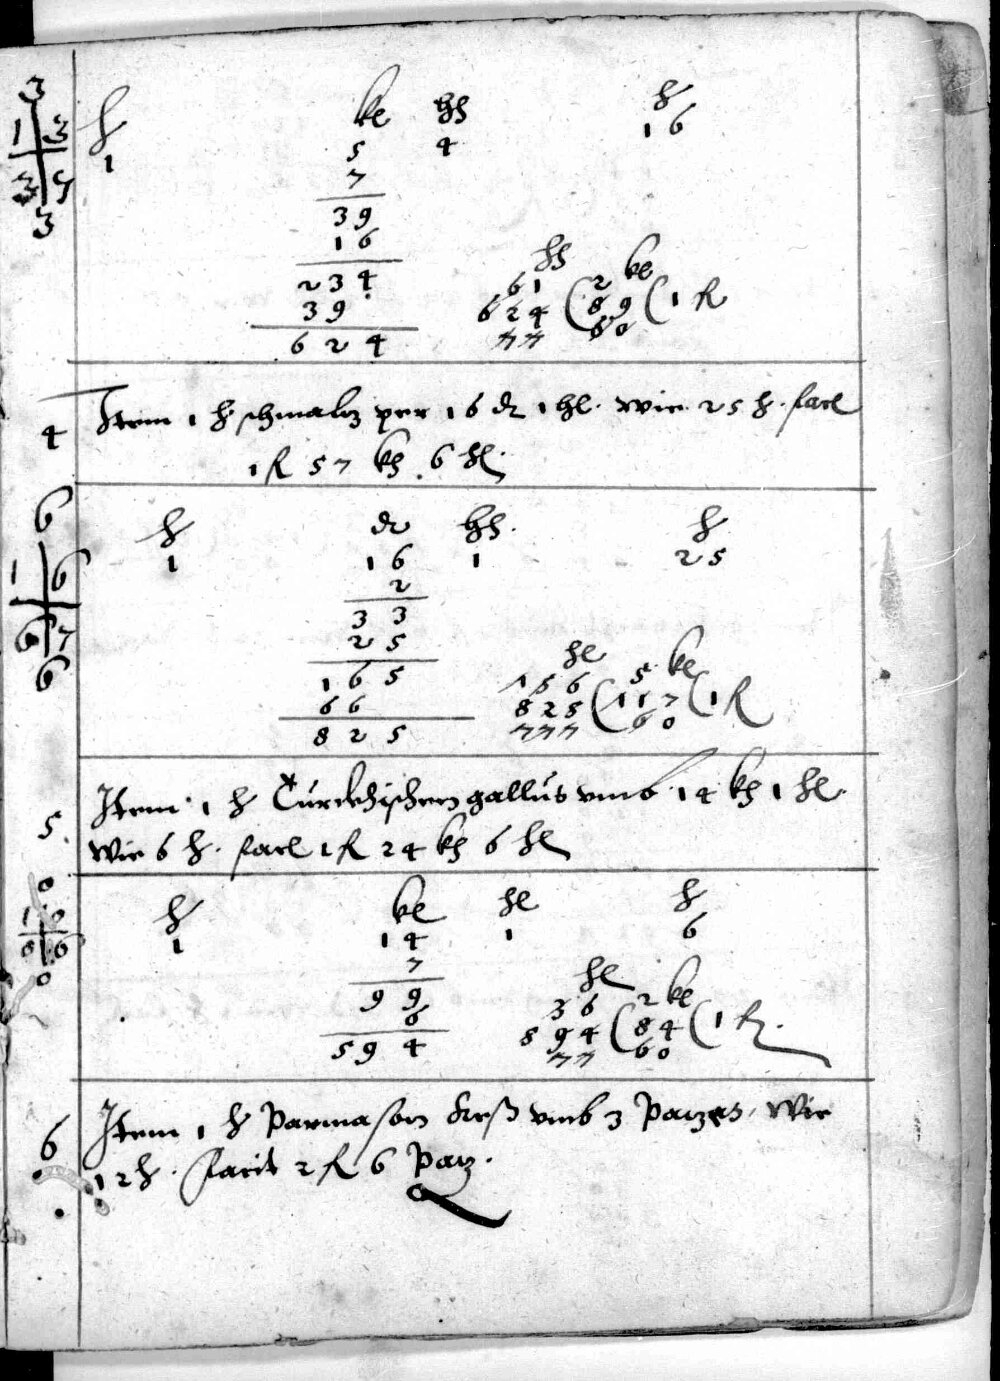 3
1 3
3 7
3
℔ kr hl ℔
1 5 4 16
7
39
16
234
39
624
hl kr
61 2
624 ( 89 ( 1 fl
77 60
4 Item 1 ℔ schmaltz per 16 ₰ 1 hl. wie 25 ℔. facit
1 fl 57 kr 6 hl.
6
1 6
6 7
6
℔ ₰ hl. ℔
1 16 1 25
2
33
25
165
66
825
hl kr
156 5
825 ( 117 ( 1 fl
777 60
5. Item 1 ℔ Türckhischen gallus umb 14 kr 1 hl.
wie 6 ℔. facit 1 fl 24 kr 6 hl
0
1 0
0 6
0
℔ kr hl ℔
1 14 1 6
7
99
6
594
hl kr
36 2
594 ( 84 ( 1 fl.
77 60
6 Item 1 ℔ Parmason Keß umb 3 Patzen, wie
12 ℔. facit 2 fl 6 Patz.